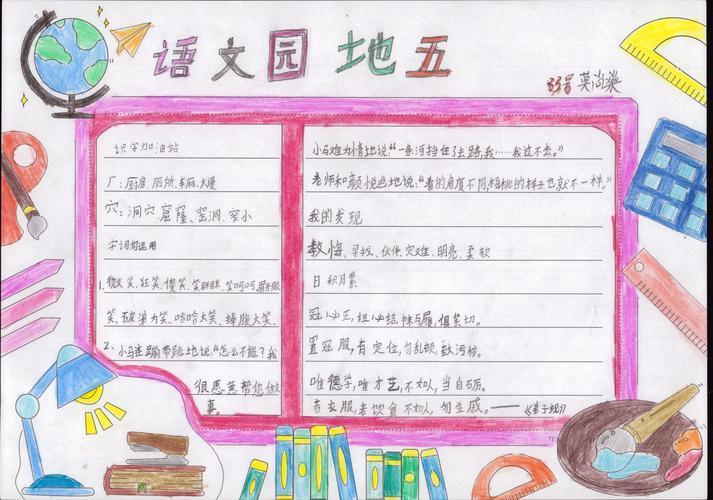 语文园地五
33号 莫尚燊
识字加油站
厂:厨房、厕所、车厢、大厦
穴:洞穴 窟窿、窑洞、窄小
字词句运用
1、微笑、狂笑、傻笑、笑眯眯、笑呵呵、眉开眼
笑、破涕为笑、哈哈大笑、捧腹大笑、
2、小马连蹦带跳地说:“怎么不能?我
很愿意帮您做
事。
小马难为情地说:“一条河挡住了去路,我……我过不去。”
老师和颜悦色地说:“看的角度不同,杨桃的样子也就不一样。”
我的发现
教悔、寻找、伙伴、灾难、明亮、柔软
日积月累
冠必正,纽必结,袜与履,俱紧切。
置冠服,有定位,勿乱顿,致污秽。
唯德学,唯才艺,不如人,当自砺。
若衣服,若饮食 不如人,勿生戚。——《弟子规》